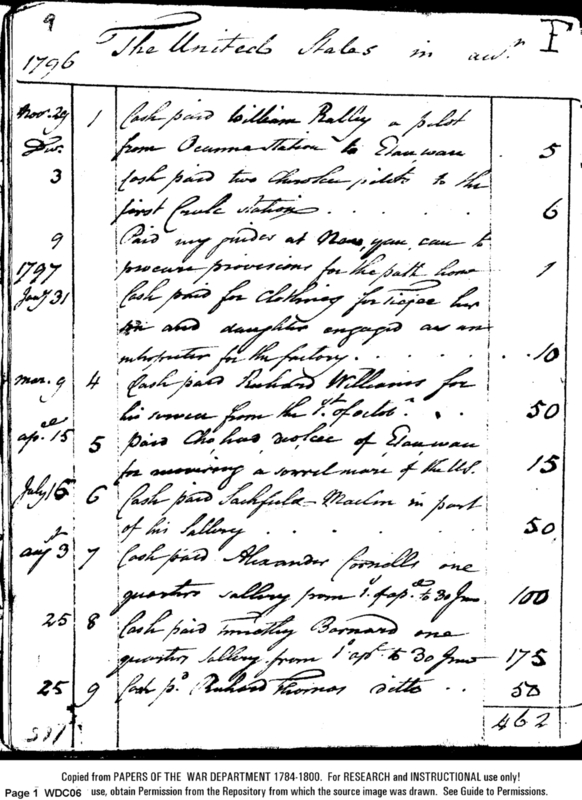 9
1796 The United States in acct. F
Nov. 29 1 Cash paid William Ralley a pilot
Decr. from Ocunna station to Etauwau 5
3 Cash paid two Cherokee pilots to the
first Creek station . . . . . 6
9 Paid my guides at New, yau, cau to
1797 procure provisions for the path home 1
Jany 31 Cash paid for Clothing for
and daughter engaged as an
interpreter for the factory . . . . . 10
mar. 9 4 Cash paid Richard Williams for
his service from the 1st of octobr. . . 50
apel. 15 5 paid of Etauwau
for a sorrel mare of the US. 15
July 16 6 Cash paid Sackfield Maclin in part
of his Sallery . . . . . 50
augt 3 7 Cash paid Alexander Cornells one
quarters sallery from 1st of apel to 30 June 100
25 8 Cash paid Timothy Barnard one
quarters sallery from 1st apl. to 30 June 175
25 9 Cash pd. Richard Thomas ditto . . 50
462
Copied from PAPERS OF THE WAR DEPARTMENT 1784-1800. For RESEARCH and INSTRUCTIONAL use only!
Page 1 WDC06 use, obtain Permission from the Repository from which the source image was drawn. See Guide to Permissions.